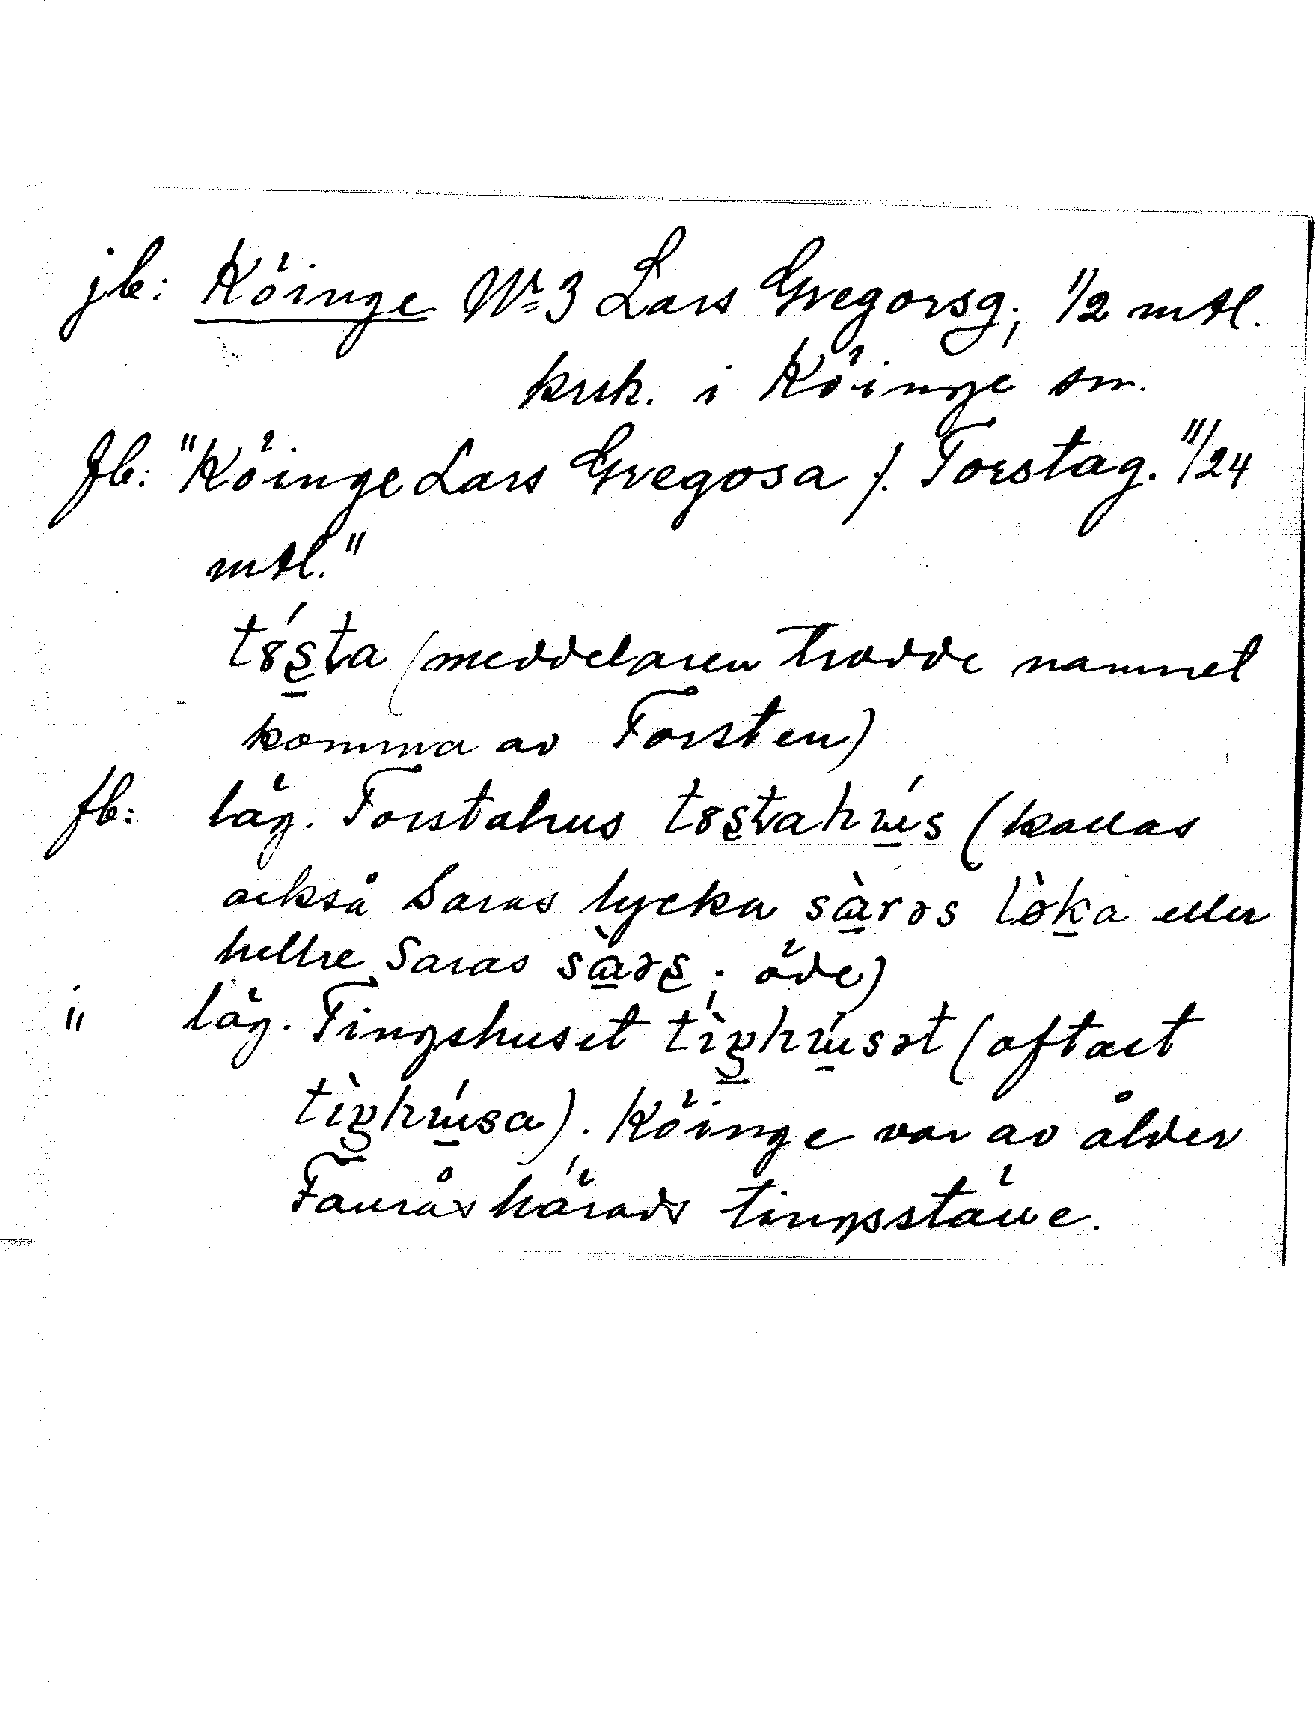 jb: Köinge No 3 Lars Gregorsg; 1/2 mtl.
krsk. i Köinge sn.
fb: "Köinge Lars Gregosa /. Torstag. 11/24
mtl."
tósta (meddelaren trodde namnet
komma av Torsten)
fb: läg. Torstahus tostahús (kallas
också Saras lycka sàrəs lə̀ka eller
hellre Saras sàrəs; öde)
" läg. Tingshuset tìŋhúsət (oftast
tìŋhúsa). Köinge var av ålder
Faurås härads tingsställe.